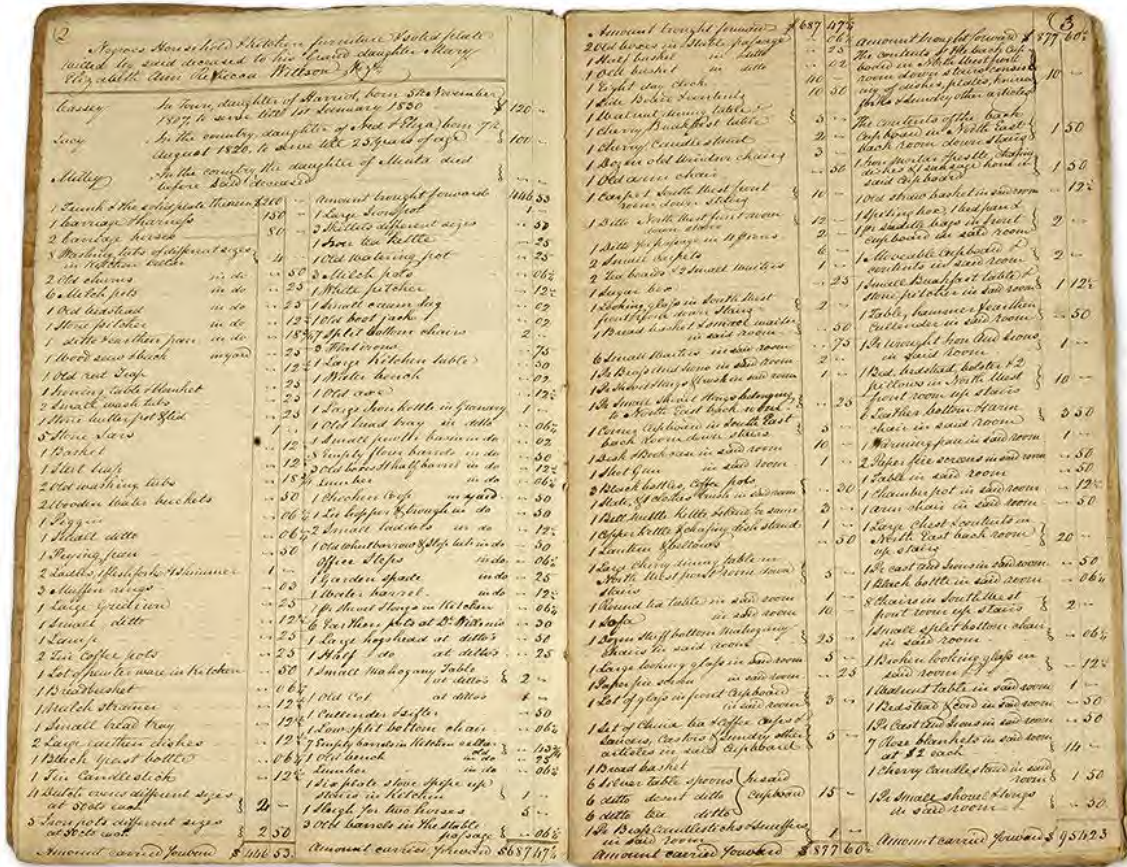 2
Negroes Household & Kitchen furniture & solid plate
willed by said deceased to his Grand daughter Mary
Elizabeth Ann Rebecca Willson
Cassey In Town, daughter of Harriot, born 5th November
1807, to serve till 1st January 1830 120 --
Lucy In the country, daughter of Ned & Eliza, born 7th
August 1820, to serve till 25 years of age 100 --
Milley In the country the daughter of Menta died
before said deceased
1 Trunk & the solid plate therein $200 --
1 Carriage & harness 150 --
2 Carriage horses 80 --
8 Washing tubs of different sizes
in Kitchen cellar 4 --
2 Old churns in do -- 50
6 Milch pots in do -- 25
1 Old bedstead in do -- 25
1 Stone pitcher in do -- 12½
1 ditto & earthen pan in do -- 18¾
1 Wood saw & buck in yard -- 25
1 Old rat trap -- 12½
1 Ironing table & blanket -- 25
2 Small wash tubs -- 25
1 Stone butter pot & lid -- 25
5 Stone Jars 1 --
1 Basket -- 12
1 Steel trap -- 12
2 Old washing tubs -- 18¾
2 Wooden water buckets -- 50
1 Piggin -- 06¼
1 Small ditto -- 06¼
1 Frying pan -- 50
2 Ladles, 1 flesh fork & 1 skimmer 1 --
3 Muffin rings -- 03
1 Large Gridiron -- 25
1 Small ditto -- 12½
1 Lamp -- 25
2 Tin Coffee pots -- 25
1 Lot of pewter ware in Kitchen -- 50
1 Breadbasket -- 06¼
1 Milch strainer -- 12½
1 Small bread tray -- 12½
2 Large earthen dishes -- 12½
1 Black yeast bottle -- 06¼
1 Tin Candlestick -- 12½
4 Dutch ovens different sizes
at 50cts each 2 --
5 Iron pots different sizes
at 50cts each 2 50
Amount carried forward $446 53
Amount brought forward $446 53
1 Large Iron pot 1 --
3 Skillets different sizes -- 50
1 Iron tea kettle -- 25
1 Old watering pot -- 25
3 Milch pots -- 06¼
1 White pitcher -- 12½
1 Small cream Jug -- 02
1 Old boot jack -- 02
7 Split bottom chairs 2 --
3 Flat irons -- 75
1 Large Kitchen table -- 50
1 Water bench -- 02
1 Old axe -- 12½
1 Large Iron kettle in Granary 1 --
1 Old sand tray in ditto -- 06¼
1 Small pewter basin in do -- 02
8 Empty flour barrels in do -- 50
3 Old boxes & half barrel in do -- 12½
Lumber in do -- 06¼
1 Chicken Coop in yard -- 50
1 Lie hopper & trough in do -- 50
2 Small ladders in do -- 12½
1 Old wheelbarrow & Slop tub in do -- 50
Office Steps in do -- 06¼
1 Garden spade in do -- 25
1 Water barrel in do -- 12½
1 Pr Shovel & tongs in Kitchen -- 06¼
6 Earthen pots at -- 50
1 Large hogshead at ditto's -- 50
1 Half do at ditto's -- 25
1 Small Mahogany Table
at ditto's 2 --
1 Old Cot at ditto's
1 Cullender & sifter -- 50
1 Low split bottom chair -- 06¼
7 Empty barrels in Kitchen cellar -- 43¾
1 Old bench in do -- 25
Lumber in do -- 06¼
1 Six plate stove & pipe up
stairs in Kitchen 1 --
1 Sleigh for two horses 5 --
3 Old barrels in the stable
passage -- 06¼
Amount carried forward $687 47½
Amount brought forward $687 47½
2 Old boxes in Stable passage -- 06¼
1 Half bushel in ditto -- 25
1 Old basket in ditto -- 02
1 Eight day clock 40 --
1 Side Board & contents 10 50
1 Walnut dining table &
1 Cherry Breakfast table 5 --
1 Cherry Candlestand 2 --
1 Dozen old Windsor chairs 3 --
1 Old arm chair -- 50
1 Carpet South West front
room down stairs 10 --
1 Ditto North West front room
down stairs 12 --
1 Ditto for passage in 4 pieces 6 --
2 Small carpets
2 Tea boards & 2 Small waiters 1 --
1 Sugar box -- 25
1 Looking glass in South West
front room down stairs 2 --
1 Bread basket & small waiter
in said room -- 50
6 Small waiters in said room -- 75
1 Pr Brass And Irons in said room 2 --
1 Pr Shovel & tongs & brush in said room 1 --
1 Pr Small shovel & tongs belonging
to North East back room -- 25
1 Corner Cupboard in South East
back room down stairs 10 --
1 Desk & Bookcase in said room 10 --
1 Shot Gun in said room 1 --
3 Black bottles, Coffee pots
1 Slate, & 1 clothes brush in said room -- 30
1 Bell metal Kettle & stand in same 3 --
1 Copper kettle & chafing dish stand 1 --
1 Lantern & bellows -- 50
1 Large cherry dining table in
North West front room down
stairs 5 --
1 Round tea table in said room 1 --
1 Sofa in said room 10 --
1 Dozen stuff bottom Mahogany
chairs in said room 25 --
1 Large looking glass in said room 5 --
1 Paper fire screen in said room -- 25
1 Lot of glass in front Cupboard
in said room 3 --
1 Set of China tea & Coffee Cups &
Saucers, Castors & Sundry other
articles in said Cupboard 5 --
1 Bread basket
6 Silver table spoons in said
6 ditto desert ditto cupboard 15 --
6 ditto tea ditto
1 Pr Brass Candlesticks & snuffers
in said room 1 --
Amount carried forward $877 60½
3
Amount brought forward $877 60½
The contents of the back Cup-
board in North West front
room down stairs consist-
ing of dishes, plates, knives
forks & Sundry other articles 10 --
The contents of the back
Cupboard in North East
back room down stairs 1 50
1 Iron mortar & pestle, chafing
dishes & 1 sausage horn in
said Cupboard 1 50
1 Old straw basket in said room -- 12½
1 Spitting box, 1 bed pan &
1 pr saddle bags in front
cupboard in said room 2 --
1 Moveable Cupboard &
contents in said room 2 --
1 Small Breakfast table &
stone pitcher in said room 1 12½
1 Table, hammer & earthen
cullender in said room -- 50
1 Pr wrought Iron And Irons
in said room 1 --
1 Bed, bedstead, bolster & 2
pillows in North West
front room up stairs 10 --
6 Leather bottom & arm
chair in said room 3 50
1 Warming pan in said room 1 --
2 Paper fire screens in said room -- 50
1 Table in said room -- 50
1 Chamber pot in said room -- 12½
1 arm chair in said room -- 50
1 Large Chest & contents in
North East back room
up stairs 20 --
1 Pr cast And Irons in said room -- 50
1 Black bottle in said room -- 06¼
8 Chairs in South West
front room up stairs 2 --
1 Small split bottom chair
in said room -- 06¼
1 Broken looking glass in
said room -- 12½
1 Walnut table in said room 1 --
1 Bedstead & Cord in said room -- 50
1 Pr Cast And Irons in said room -- 50
7 Rose blankets in said room
at $2 each 14 --
1 Cherry Candle stand in said
room 1 50
1 Pr Small shovel & tongs
in said room -- 50
Amount carried forward $954 23